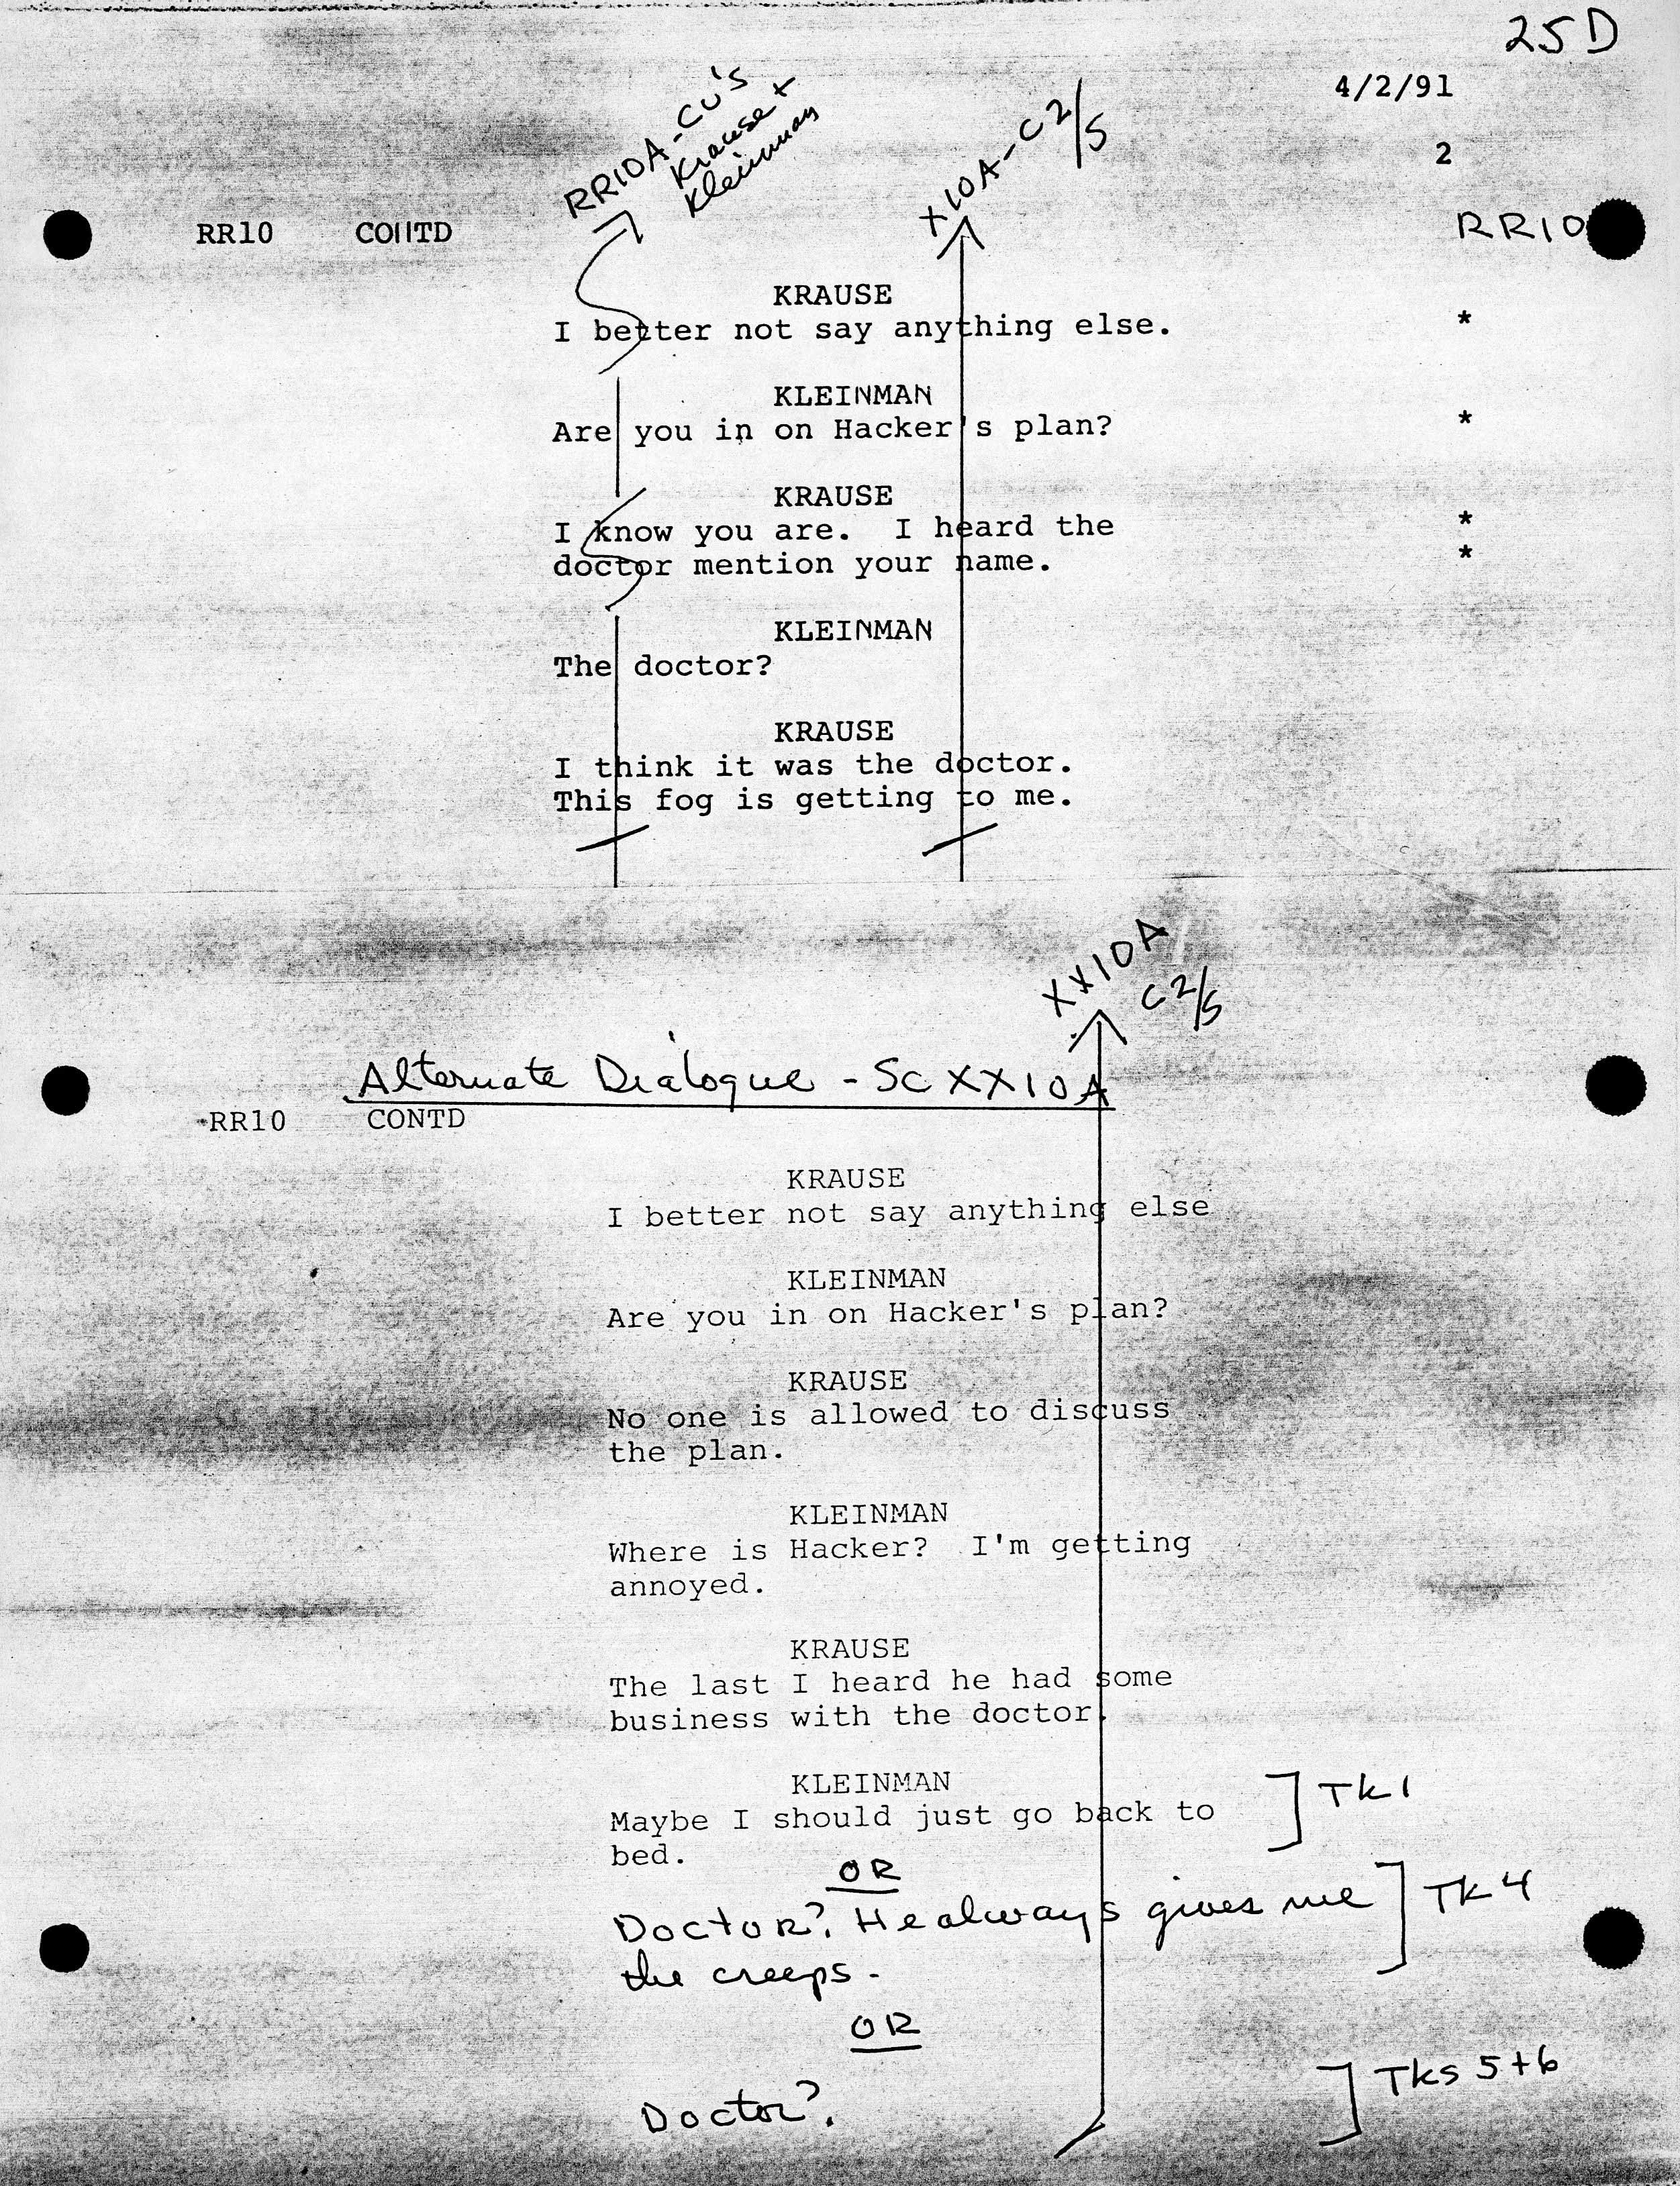 25D
4/2/91
RR10A-CU's
Krause +
Kleinman
X10A-C2/S
2
RR10 CONTD RR10
KRAUSE
I better not say anything else. *
KLEINMAN
Are you in on Hacker's plan? *
KRAUSE
I know you are. I heard the *
doctor mention your name. *
KLEINMAN
The doctor?
KRAUSE
I think it was the doctor.
This fog is getting to me.
XX10A
C2/S
Alternate Dialogue - SC XX10A
RR10 CONTD
KRAUSE
I better not say anything else
KLEINMAN
Are you in on Hacker's plan?
KRAUSE
No one is allowed to discuss
the plan.
KLEINMAN
Where is Hacker? I'm getting
annoyed.
KRAUSE
The last I heard he had some
business with the doctor.
KLEINMAN
Maybe I should just go back to ] Tk 1
bed.
OR
Doctor? He always gives me ] TK 4
the creeps.
OR
Doctor? ] Tks 5+6